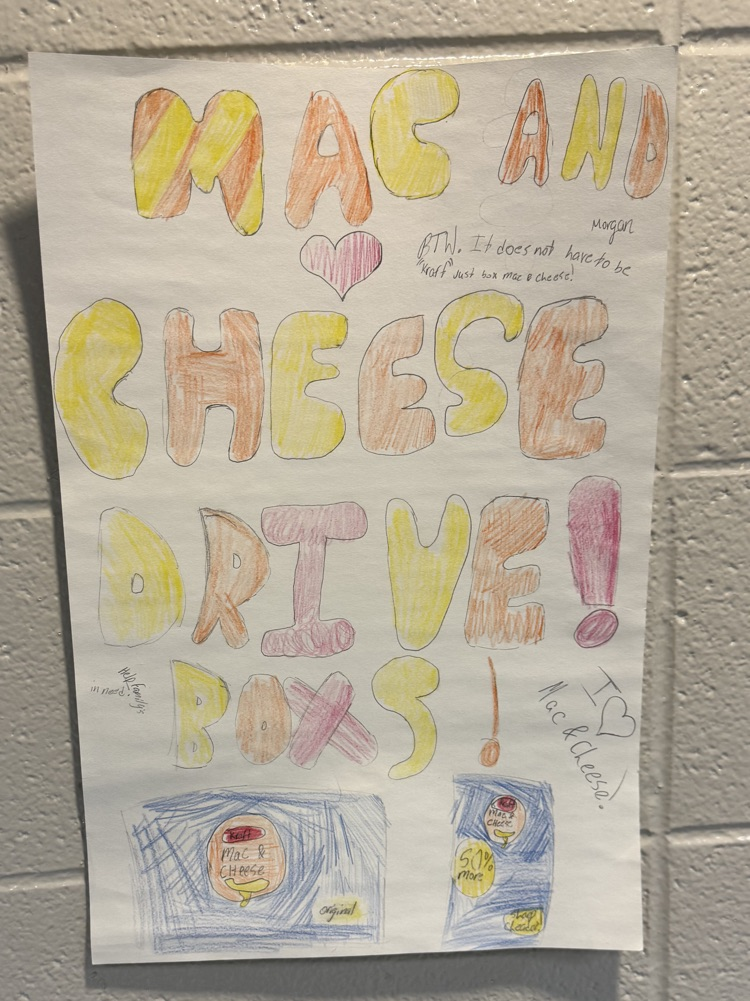 MAC AND
Morgan
BTW. It does not have to be
"Kraft" Just box mac & cheese!
CHEESE
DRIVE!
Help family's
in need!
BOXS!
I ♡
Mac & Cheese!
Kraft
Mac &
CHeese
original
Kraft
Mac &
CHeese
50%
more